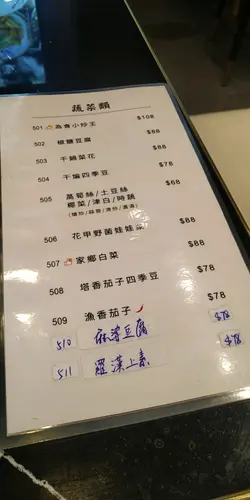 蔬菜類
501 為食小炒王 $108
502 椒鹽豆腐 $88
503 干鍋菜花 $88
504 干煸四季豆 $78
505 萵筍絲/土豆絲 $68
椰菜/津白/時蔬
506 花甲野菌娃娃菜 $88
507 家鄉白菜 $88
508 塔香茄子四季豆 $78
509 漁香茄子 $78
510 麻婆豆腐 $78
511 羅漢上素 $78